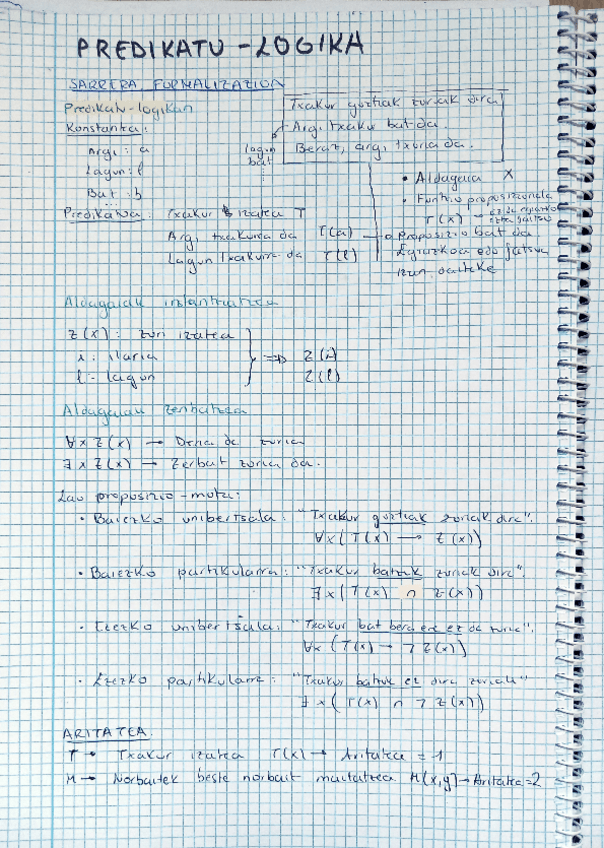 PREDIKATU - LOGIKA
SARRERA FORMALIZATION
Predikatu-logikan
Konstantea:
Argi : a
Lagun : l
Bat : b
...
Txakur guztiak zuriak dira
Argi txakur bat da.
Beraz, argi txuria da.
lagun
bat
• Aldagaia X
• Funtzio proposizionala
T(x) →
Predikatua: Txakur izatea T
Argi txakurra da T(a)
Lagun txakurra da T(l)
→ Proposizio bat da
Egiazkoa edo faltsua
izan daiteke
Aldagaiak instantziatzea
Z(x) : zuri izatea
i : ilaria
l : lagun
⇒ Z(i)
Z(l)
Aldagaiak zenbatzea
∀x Z(x) → Dena da zuria
∃x Z(x) → Zerbait zuria da.
Lau proposizio-mota:
• Baiezko unibertsala: "Txakur guztiak zuriak dira".
∀x (T(x) → Z(x))
• Baiezko partikularra: "Txakur batzuk zuriak dira".
∃x (T(x) ∩ Z(x))
• Ezezko unibertsala: "Txakur bat bera ere ez da zuria".
∀x (T(x) → ¬Z(x))
• Ezezko partikularra: "Txakur batzuk ez dira zuriak"
∃x (T(x) ∩ ¬Z(x))
ARITATEA
T → Txakur izatea T(x) → Aritatea = 1
M → Norbaitek beste norbait maitatzea M(x,y) → Aritatea = 2